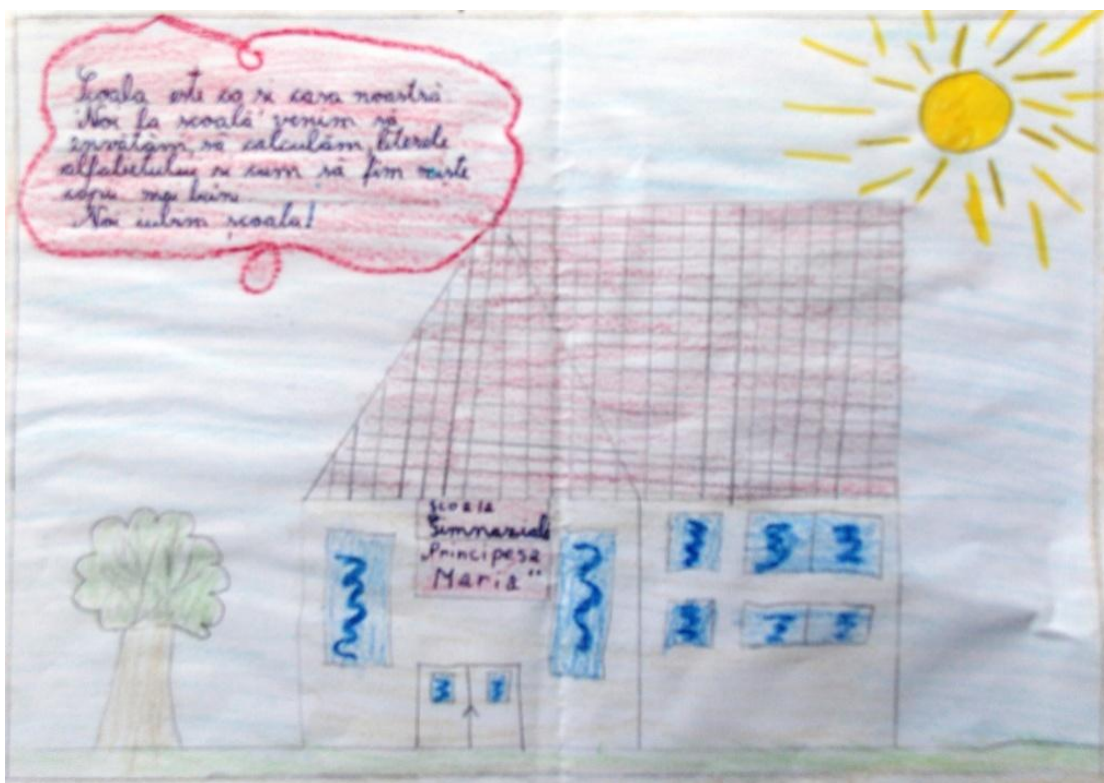 Școala este ca si casa noastră
Noi la scoală venim să
învătăm, sa calculăm, literele
alfabetului si cum să fim niste
copii mai buni.
Noi iubim școala!
Școala
Gimnaziala
„Principesa
Maria"